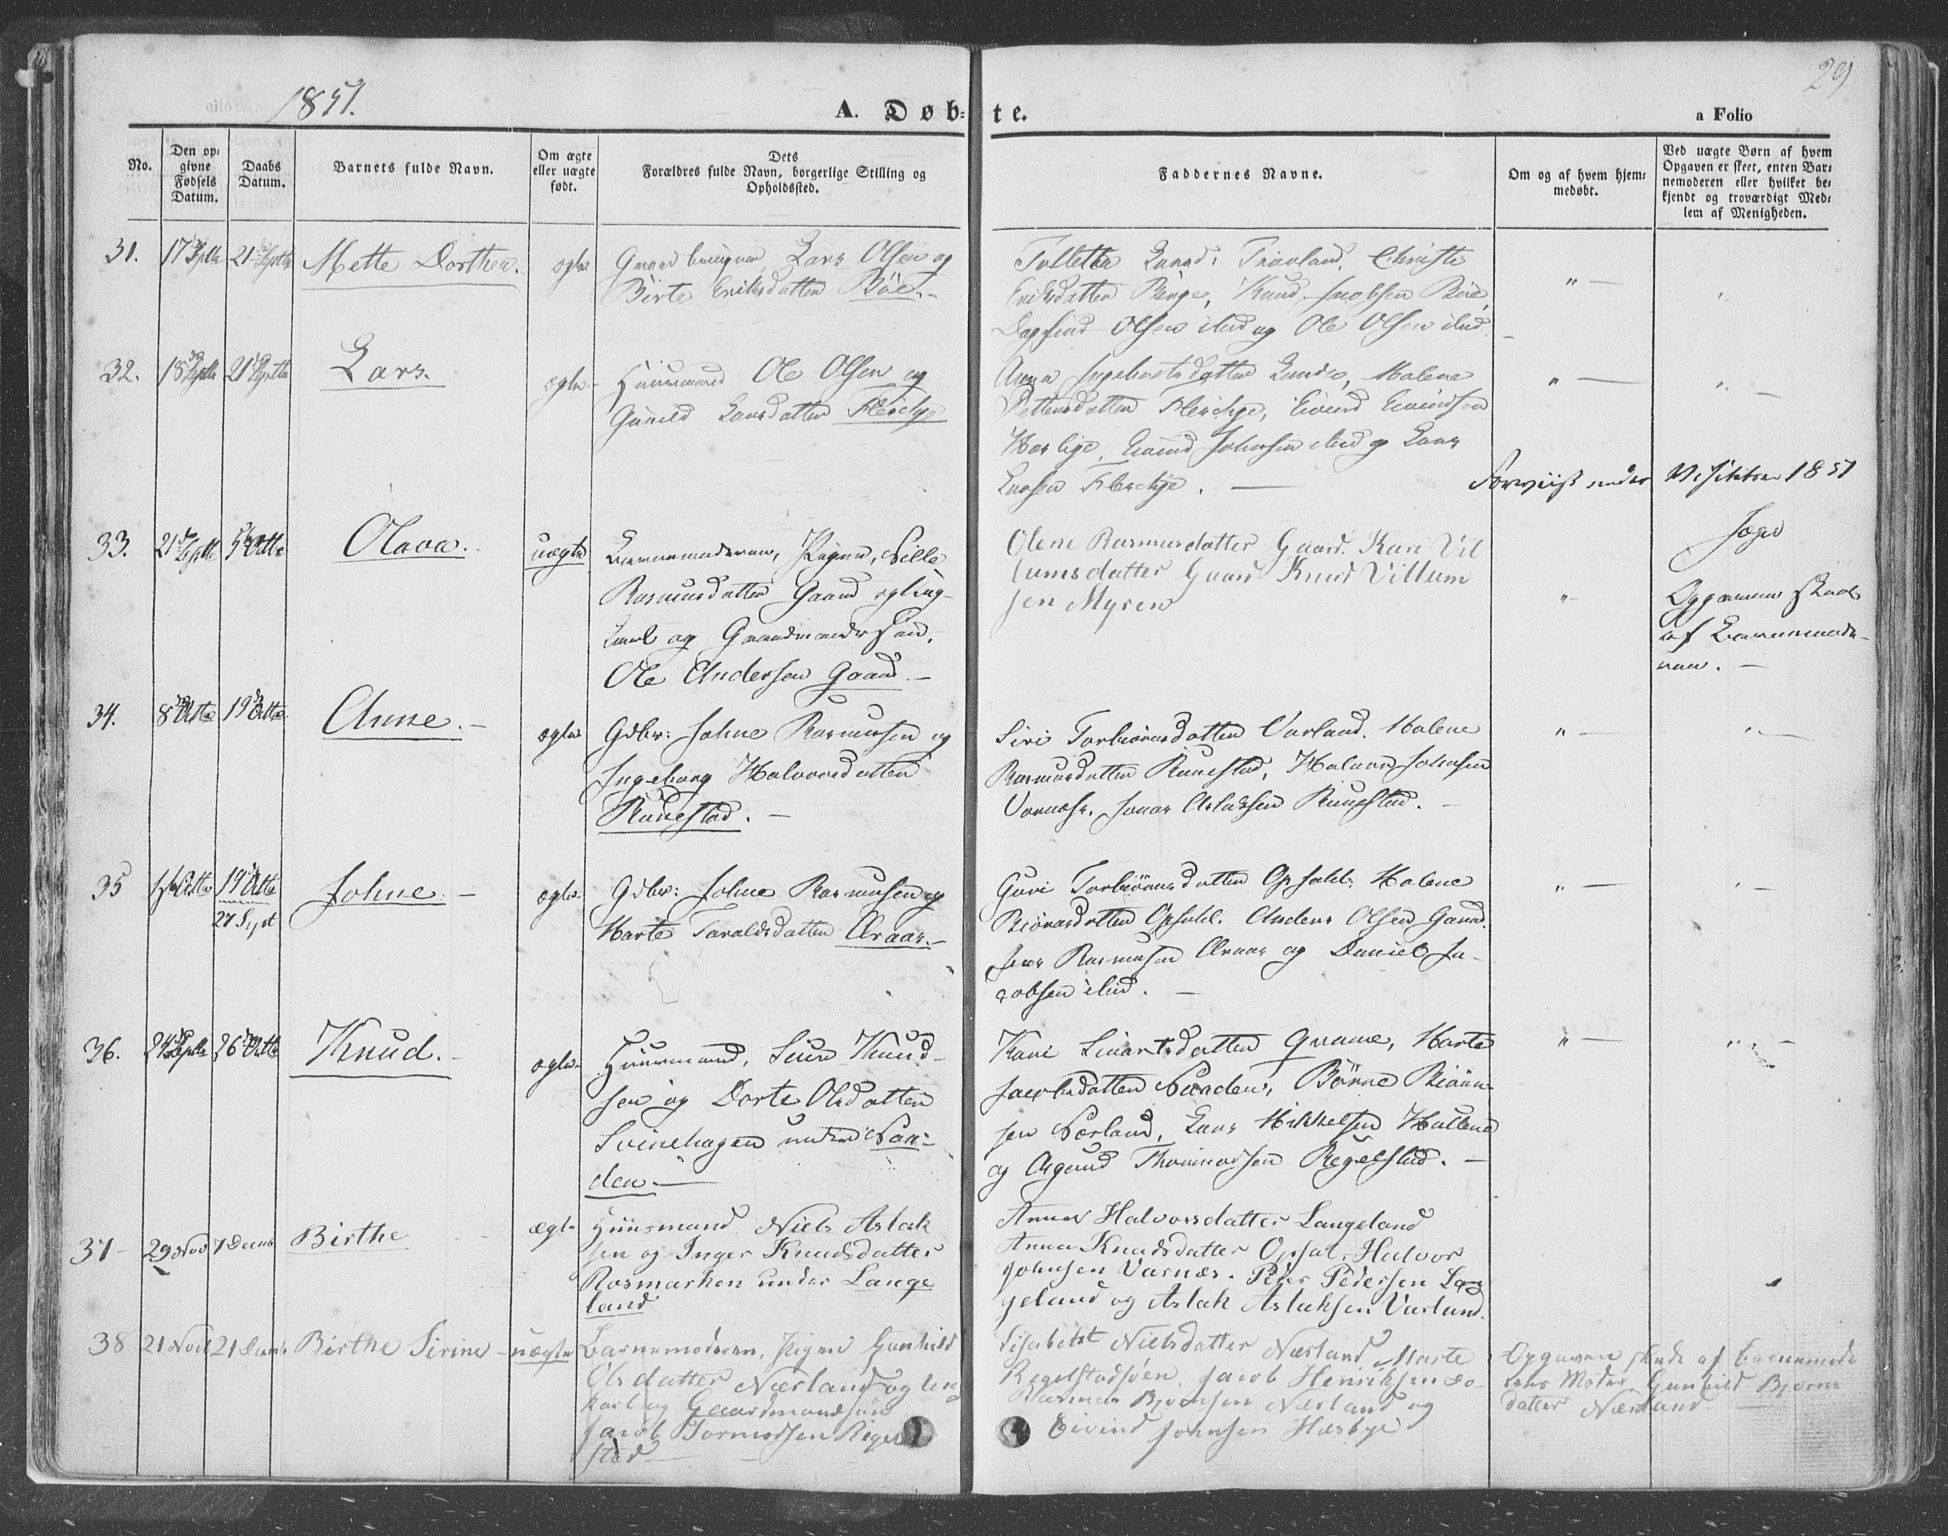 1851.
29
A. Døb-te.
a Folio
No.
Den op-
givne
Fødsels
Datum.
Daabs
Datum.
Barnets fulde Navn.
Om ægte
eller uægte
født.
Dets
Forældres fulde Navn, borgerlige Stilling og
Opholdssted.
Faddernes Navne.
Om og af hvem hjem-
medøbt.
Ved uægte Børn af hvem
Opgaven er skeet, enten Bar-
nemoderen eller hvilket be-
kjendt og troværdigt Med-
lem af Menigheden.
31.
17 Septb
21 Septbr
Mette Dorthea.
ægte
Lars Olsen og
Birte Eriksdatter Böe.
Tollette Christi
Eriksdatter Berge, Knud Jacobsen Böe,
Dagfind Olsen ibid og Ole Olsen ibid.
32.
18 Septb
21 Septbr
Lars.
ægte
Huusmand Ole Olsen og
Gunild Larsdatter
Anna Ingebretsdatter Malene
Pettersdatter Eivind Eivindsen
Eivind Johnsen ibid og Lars
Larsen
Forviist under Visitatsen 1851
33.
21 Septb
5 Octbr
Olava.
uægte
Barnemoderen, Pigen, Sille
Rasmusdatter Gaard og Ung-
karl og Gaardmandssøn,
Ole Andersen Gaard.
Olene Rasmusdatter Gaard. Kari Vil
lumsdatter Gaard Knud Villum
sen Myren
Opgaven skeet
af Barnemode-
ren.
34.
8 Octbr
19 Octbr
Anne.
ægte
Gdbr: Johne Rasmusen og
Ingeborg Halvorsdatter
Runestad.
Siri Torbiörnsdatter Varland. Malene
Rasmusdatter Runestad, Halvor Johnsen
Varnæs. Jonas Aslaksen Runestad.
35
Octbr
19 Octbr
27 Sept
Johne.
ægte
Gdbr: Johne Rasmusen og
Marte Taraldsdatter Araas.
Guri Torbiörnsdatter Opsahl. Malene
Biörnsdatter Opsahl. Anders Olsen Gaard.
Rasmusen Araas og Daniel Ja-
cobsen ibid.
36.
24 Septb
26 Octbr
Knud.
ægte
Huusmand, Knud-
sen og Dorte Olsdatter
Svinehagen under Naa-
den.
Kari Sivertsdatter Qvame, Marte
Jacobsdatter Börne Biörn-
sen Nærland, Lars Mikkelsen
og Asgaut Thormodsen Regelstad.
37
29 Nov
7 Decbr
Birthe
ægte
Huusmand Niels Aslak
sen og Inger Knudsdatter
Rosmarken under Lange
land
Anna Halvorsdatter Langeland
Anna Knudsdatter Opsal. Halvor
Johnsen Varnæs. Peder Pedersen Lan
geland og Aslak Aslaksen Varland.
38
21 Nov
21 Dec.
Birthe Sirine
uægte
Barnemoderen, Pigen Gunhild
Olsdatter Nærland og Un
karl og Gaardmandssøn
Jacob Tormodsen Regel
stad
Lisabeth Nielsdatter Nærland Marte
Regelstadsøen, Jacob Henriksen
Rasmus Bjørnsen Nærland og
Eivind Johnsen Hæsbye
Opgaven skede af Barnemode
rens Moder Gunhild Bjørns
datter Nærland